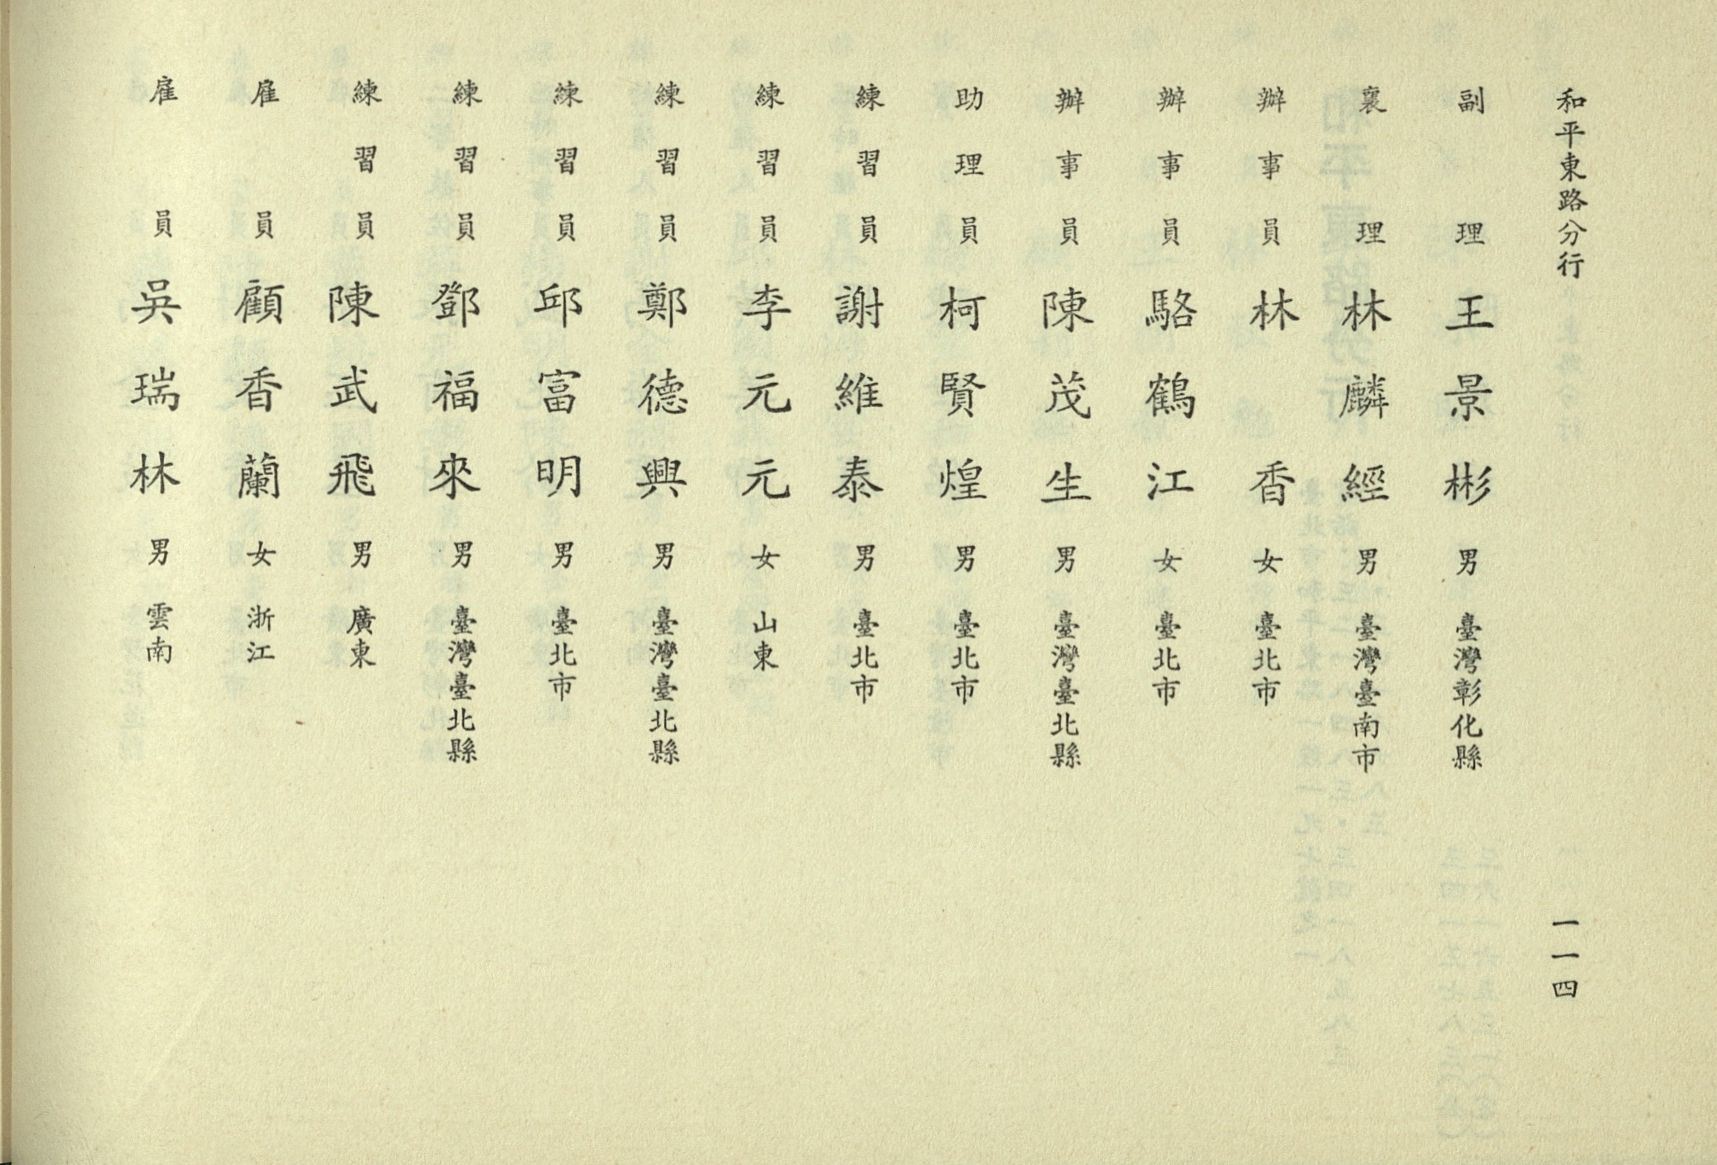 和平東路分行
副理 王景彬 男 臺灣彰化縣
襄理 林麟經 男 臺灣臺南市
辦事員 林香 女 臺北市
辦事員 駱鶴江 女 臺北市
辦事員 陳茂生 男 臺灣臺北縣
助理員 柯賢煌 男 臺北市
練習員 謝維泰 男 臺北市
練習員 李元元 女 山東
練習員 鄭德興 男 臺灣臺北縣
練習員 邱富明 男 臺北市
練習員 鄧福來 男 臺灣臺北縣
練習員 陳武飛 男 廣東
雇員 顧香蘭 女 浙江
雇員 吳瑞林 男 雲南
一一四